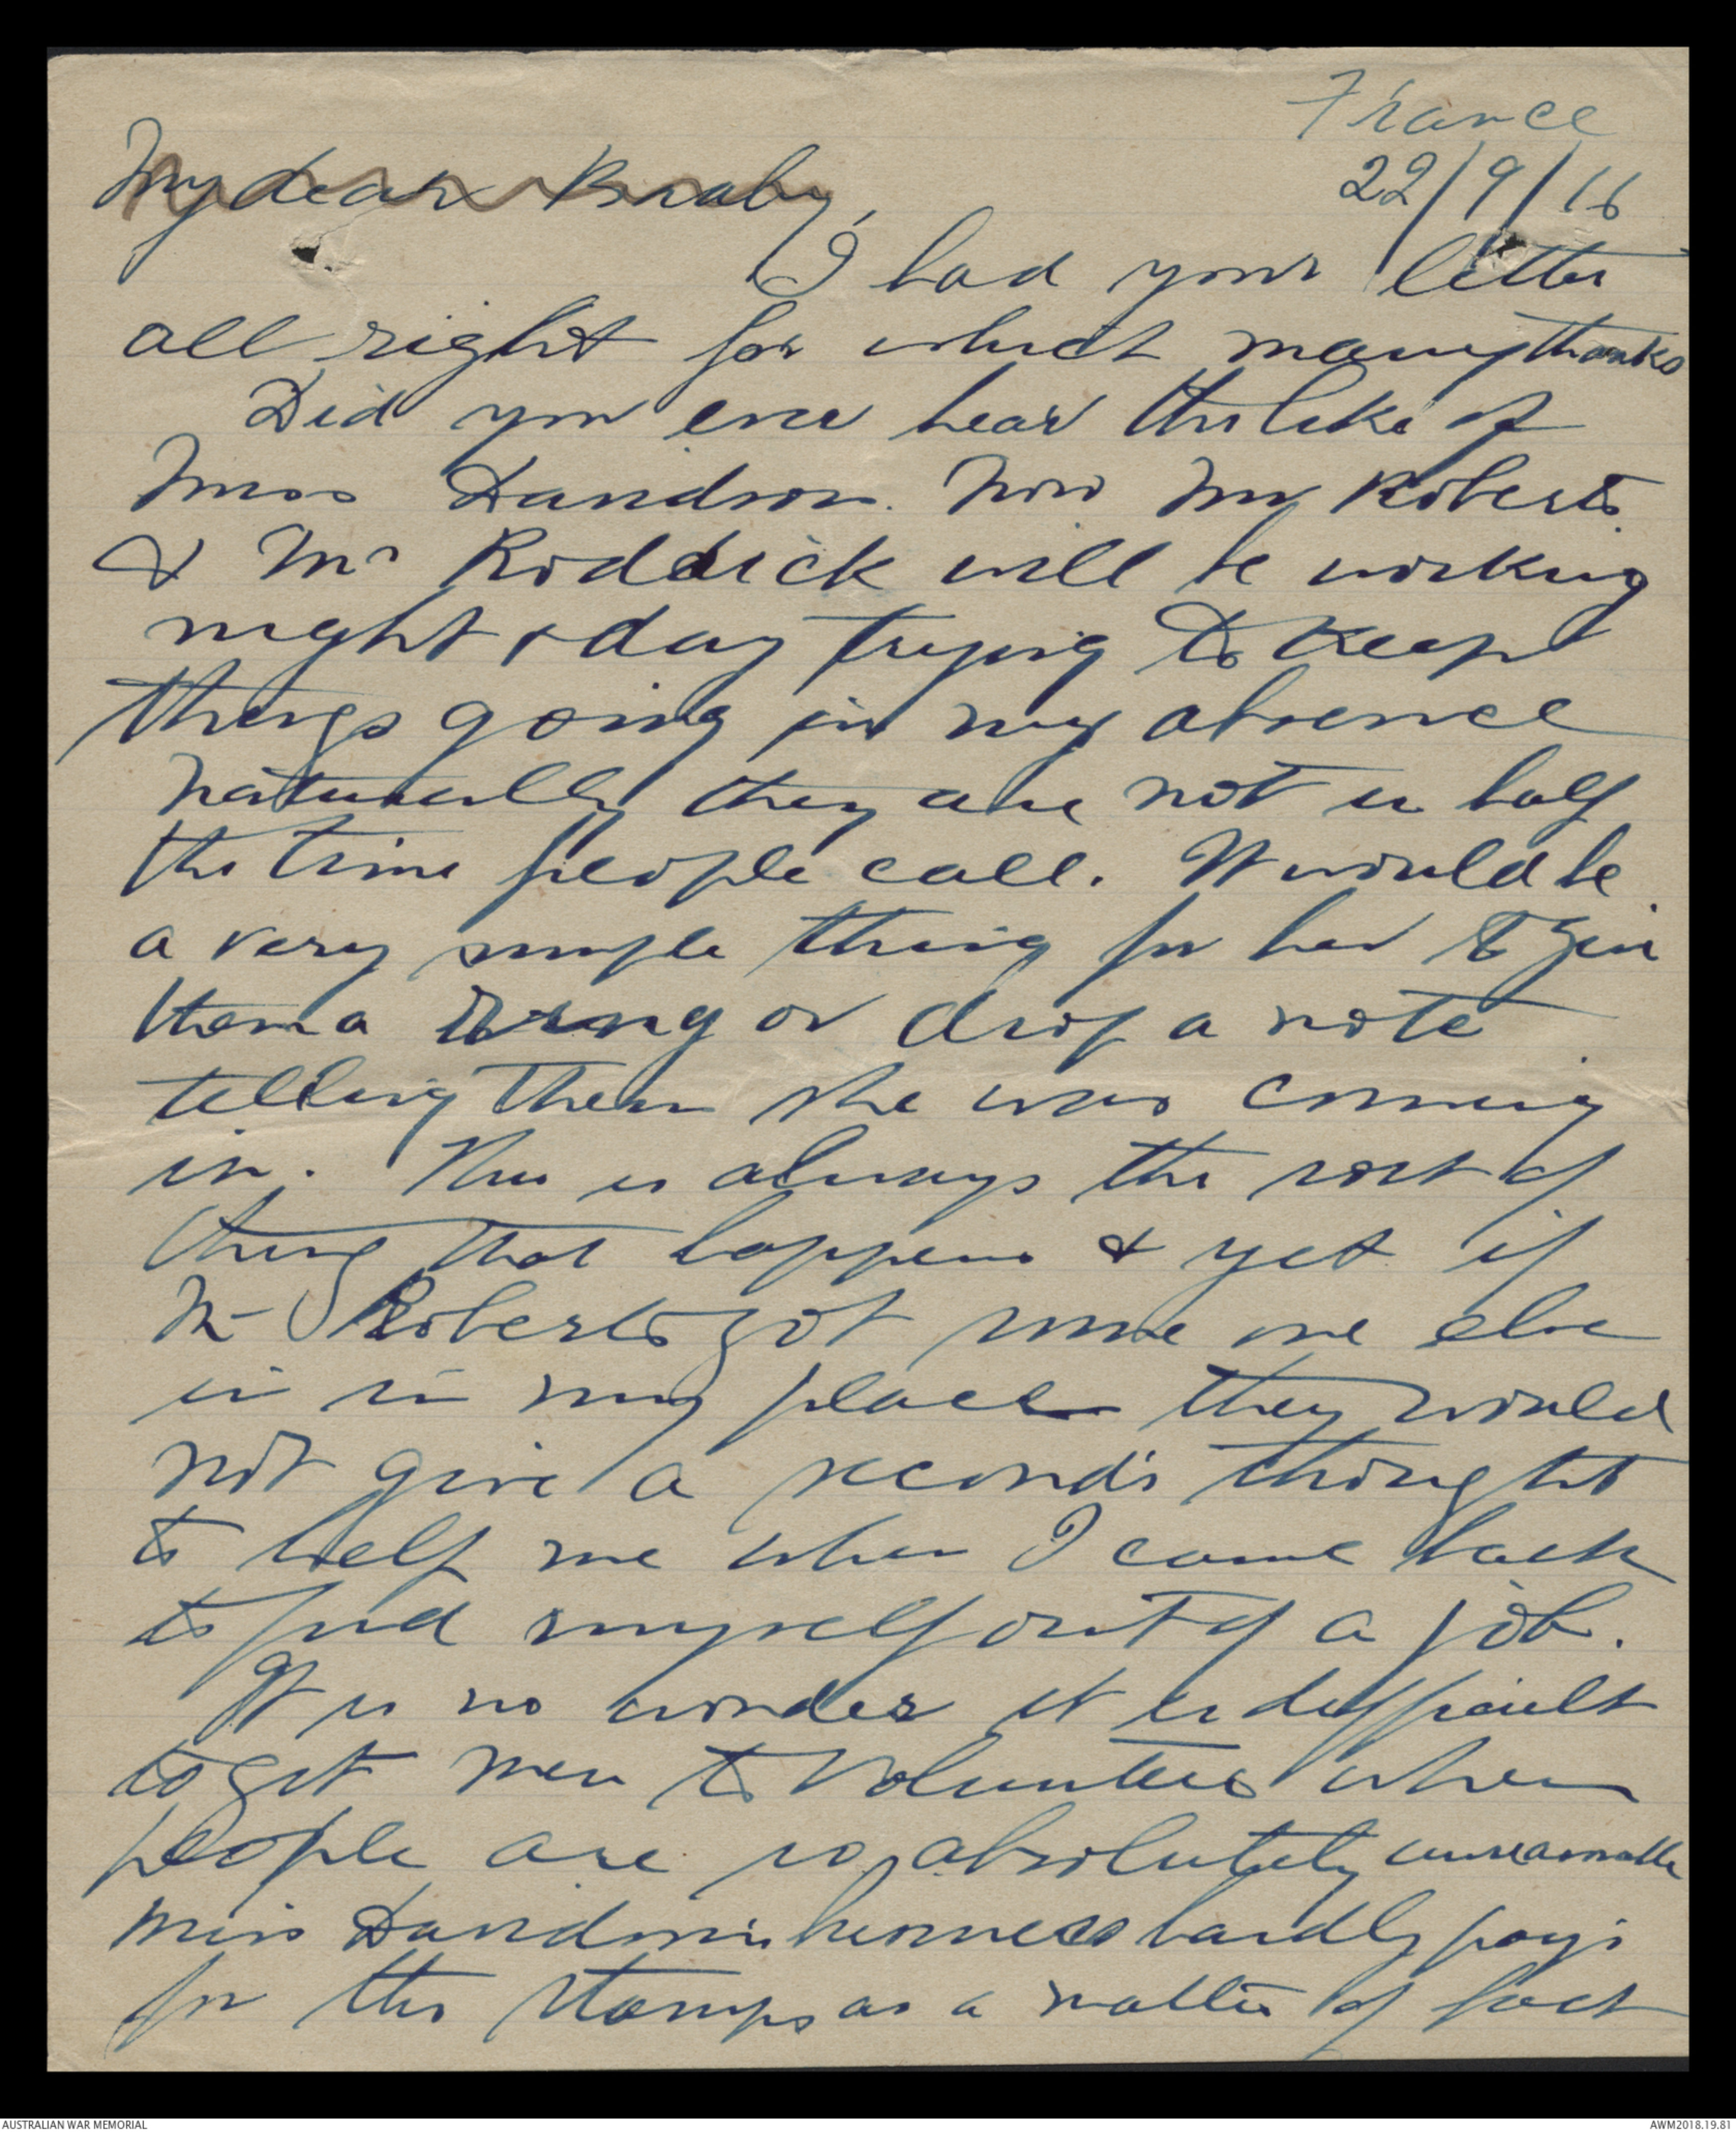 France
22/9/16
My dear
I had your letter
all right for which many thanks
Did you ever hear the like of
Miss Davidson. Now Mr Roberts
& Mr Roddrick will be working
night & day trying to keep
things going in my absence
naturally they are not in half
the time people call. It would be
a very simple thing for her to give
them a ring or drop a note
telling them she was coming
in. This is always the sort of
thing that happens & yet if
Mr Roberts got some one else
in in my place they would
not give a second's thought
to help me when I came back
to find myself out of a job.
It is no wonder it is difficult
to get men to volunteer when
people are so absolutely unreasonable
Miss Davidson's business hardly pays
for the stamps as a matter of fact
AUSTRALIAN WAR MEMORIAL
AWM2018.19.81